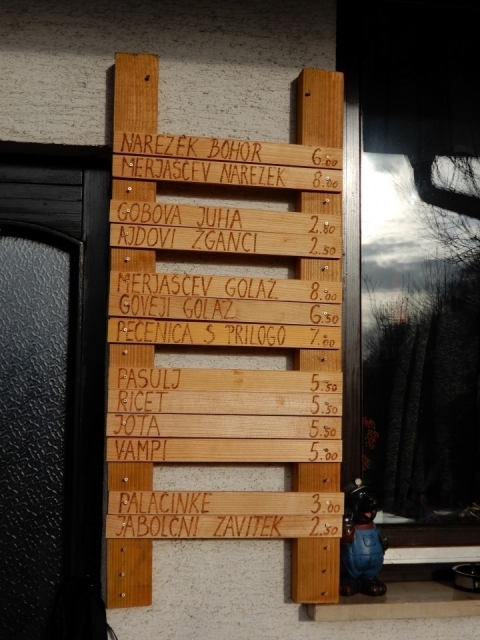 NAREZEK BOHOR 6.00
MERJAŠČEV NAREZEK 8.00
GOBOVA JUHA 2.80
AJDOVI ŽGANCI 2.50
MERJAŠČEV GOLAŽ 8.00
GOVEJI GOLAŽ 6.50
PEČENICA S PRILOGO 7.00
PASULJ 5.50
RIČET 5.50
JOTA 5.50
VAMPI 5.00
PALAČINKE 3.00
JABOLČNI ZAVITEK 2.50